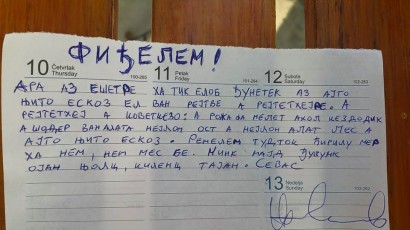 ФИЂЕЛЕМ!
10 Četvrtak Thursday 11 Petak Friday 12 Subota Saturday
АРА АЗ ЕШЕТРЕ ХА ТИК ЕЛОБ ЂУНЕТЕК АЗ АЈТО
ЊИТО ЕСКОЗ ЕЛ ВАН РЕЈТВЕ А РЕЈТЕКХЕЈРЕ. А
РЕЈТЕКХЕЈ А КӨВЕТКЕЗӨ: А РОЖА ЂА МЕЛЕТ АХОЛ КЕЗДӨДИК
А ШӨВЕР ВАНАЛАТА НЕЈЛОН ОСТ А НЕЈЛОН АЛАТ ЛЕС А
АЈТО ЊИТО ЕСКОЗ. РЕМЕЛЕМ ТУДТОК ЋИРИЛУ МЕР
ХА НЕМ, НЕМ МЕС БЕ. МИНК МАЈД ЂУВУНК
ОЈАН ЊОЛЦ, КИЛЕНЦ ТАЈАН. СЕВАС
13 Nedelja Sunday